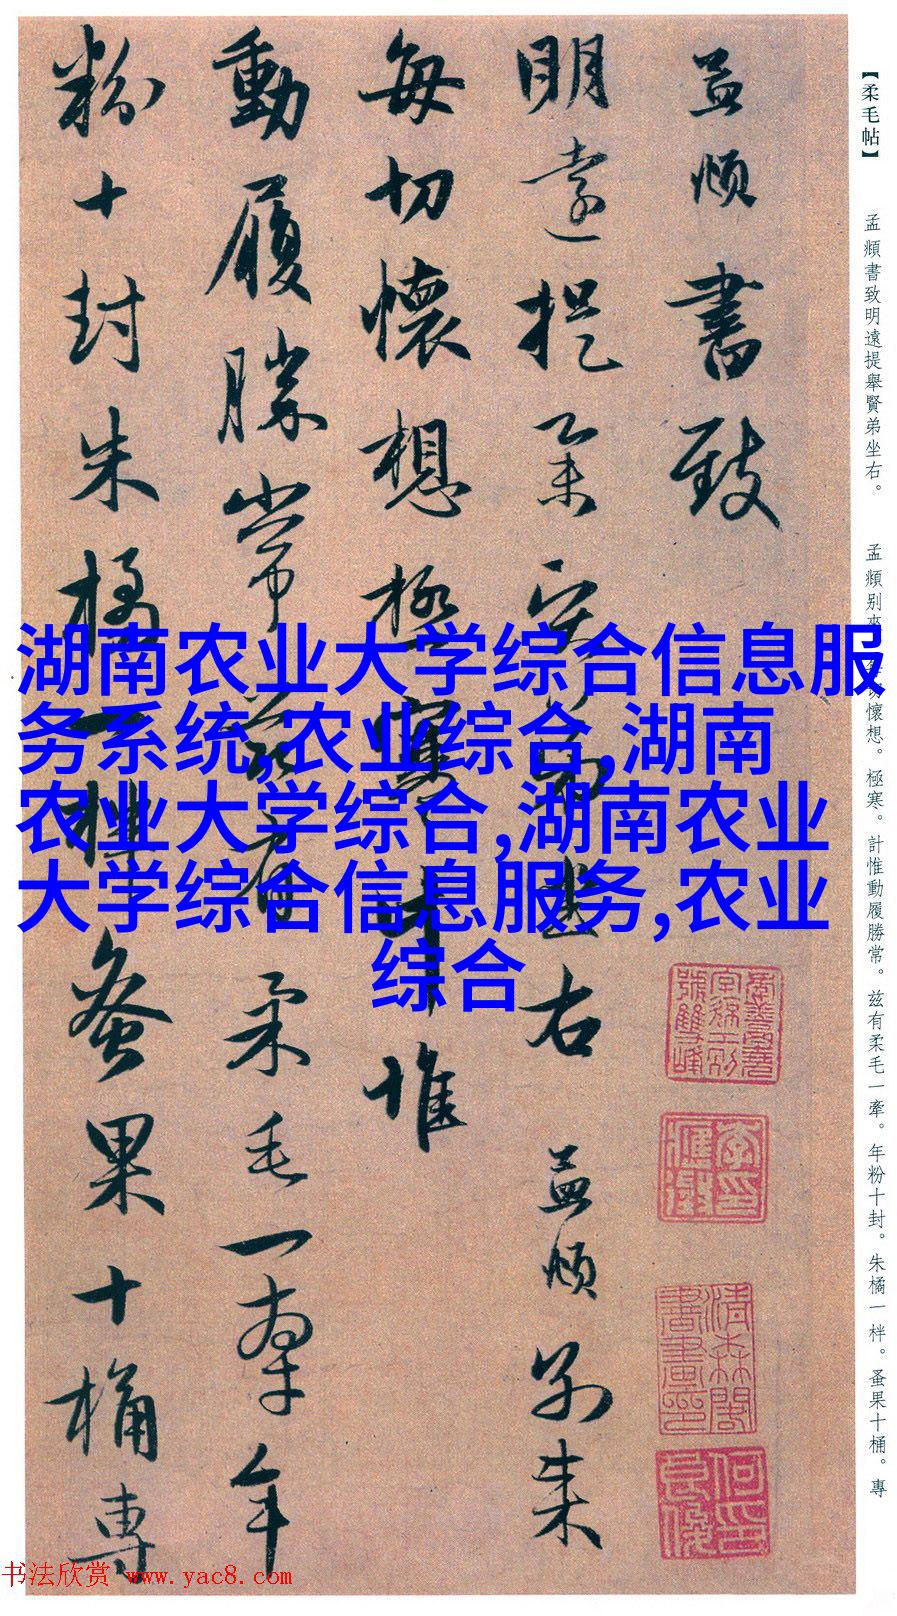 【柔毛帖】
孟頫書致明遠提舉賢弟坐右。
孟頫别來
每切懷想。極寒。計惟動履勝常。兹有柔毛一牽。年粉十封。朱橘一柈。蚤果十桶。專
孟頫書致
明遠提舉賢弟坐右
孟頫别來
每切懷想極寒計惟
動履勝常茲有柔毛一牽年
粉十封朱橘一柈蚤果十桶專
湖南农业大学综合信息服
务系统,农业综合,湖南
农业大学综合,湖南农业
大学综合信息服务,农业
综合
书法欣赏 www.yac8.com